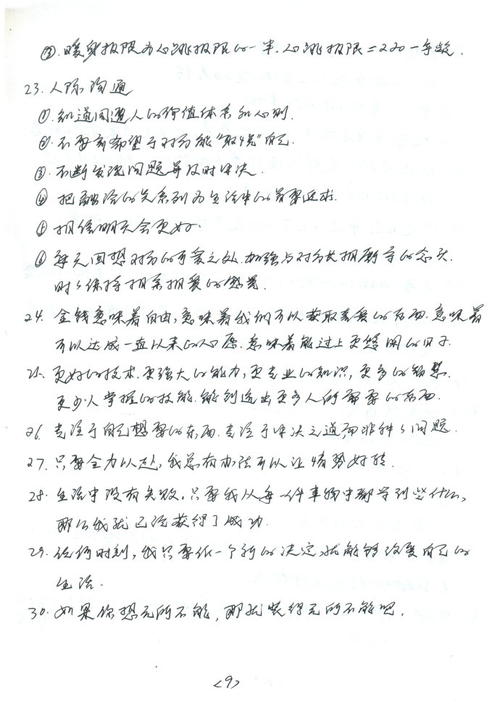 ③. 暖身极限为心跳极限的一半. 心跳极限=220一年龄.
23. 人际沟通
①. 知道周遭人的价值体系和心则.
②. 不要有希望于对方能"取悦"自己.
③. 不断发现问题并及时解决.
④ 把融洽的关系列为生活中的首要追求.
⑤ 相信明天会更好.
⑥ 每天回想对方的可爱之处, 加强与对方长相厮守的念头.
时时保持相亲相爱的感觉.
24. 金钱意味着自由, 意味着我们可以获取喜爱的东西. 意味着
可以达成一直以来的心愿. 意味着能过上更悠闲的日子.
25. 更好的技术. 更强大的能力, 更专业的知识, 更多的智慧.
更少人掌握的技能. 能创造出更多人的需要的东西.
26. 专注于自己想要的东西, 专注于解决之道而非种种问题.
27. 只要全力以赴, 我总有办法可以让情势好转.
28. 生活中没有失败. 只要我从每一件事物中都学到些什么,
那么我就已经获得了成功.
29. 任何时刻, 我只要做一个新的决定就能够改变自己的
生活.
30. 如果你想无所不能, 那就装得无所不能吧.
<9>